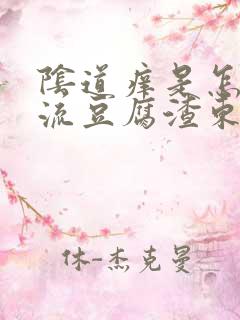 陰道痒是怎
流豆腐渣東
休-杰克曼